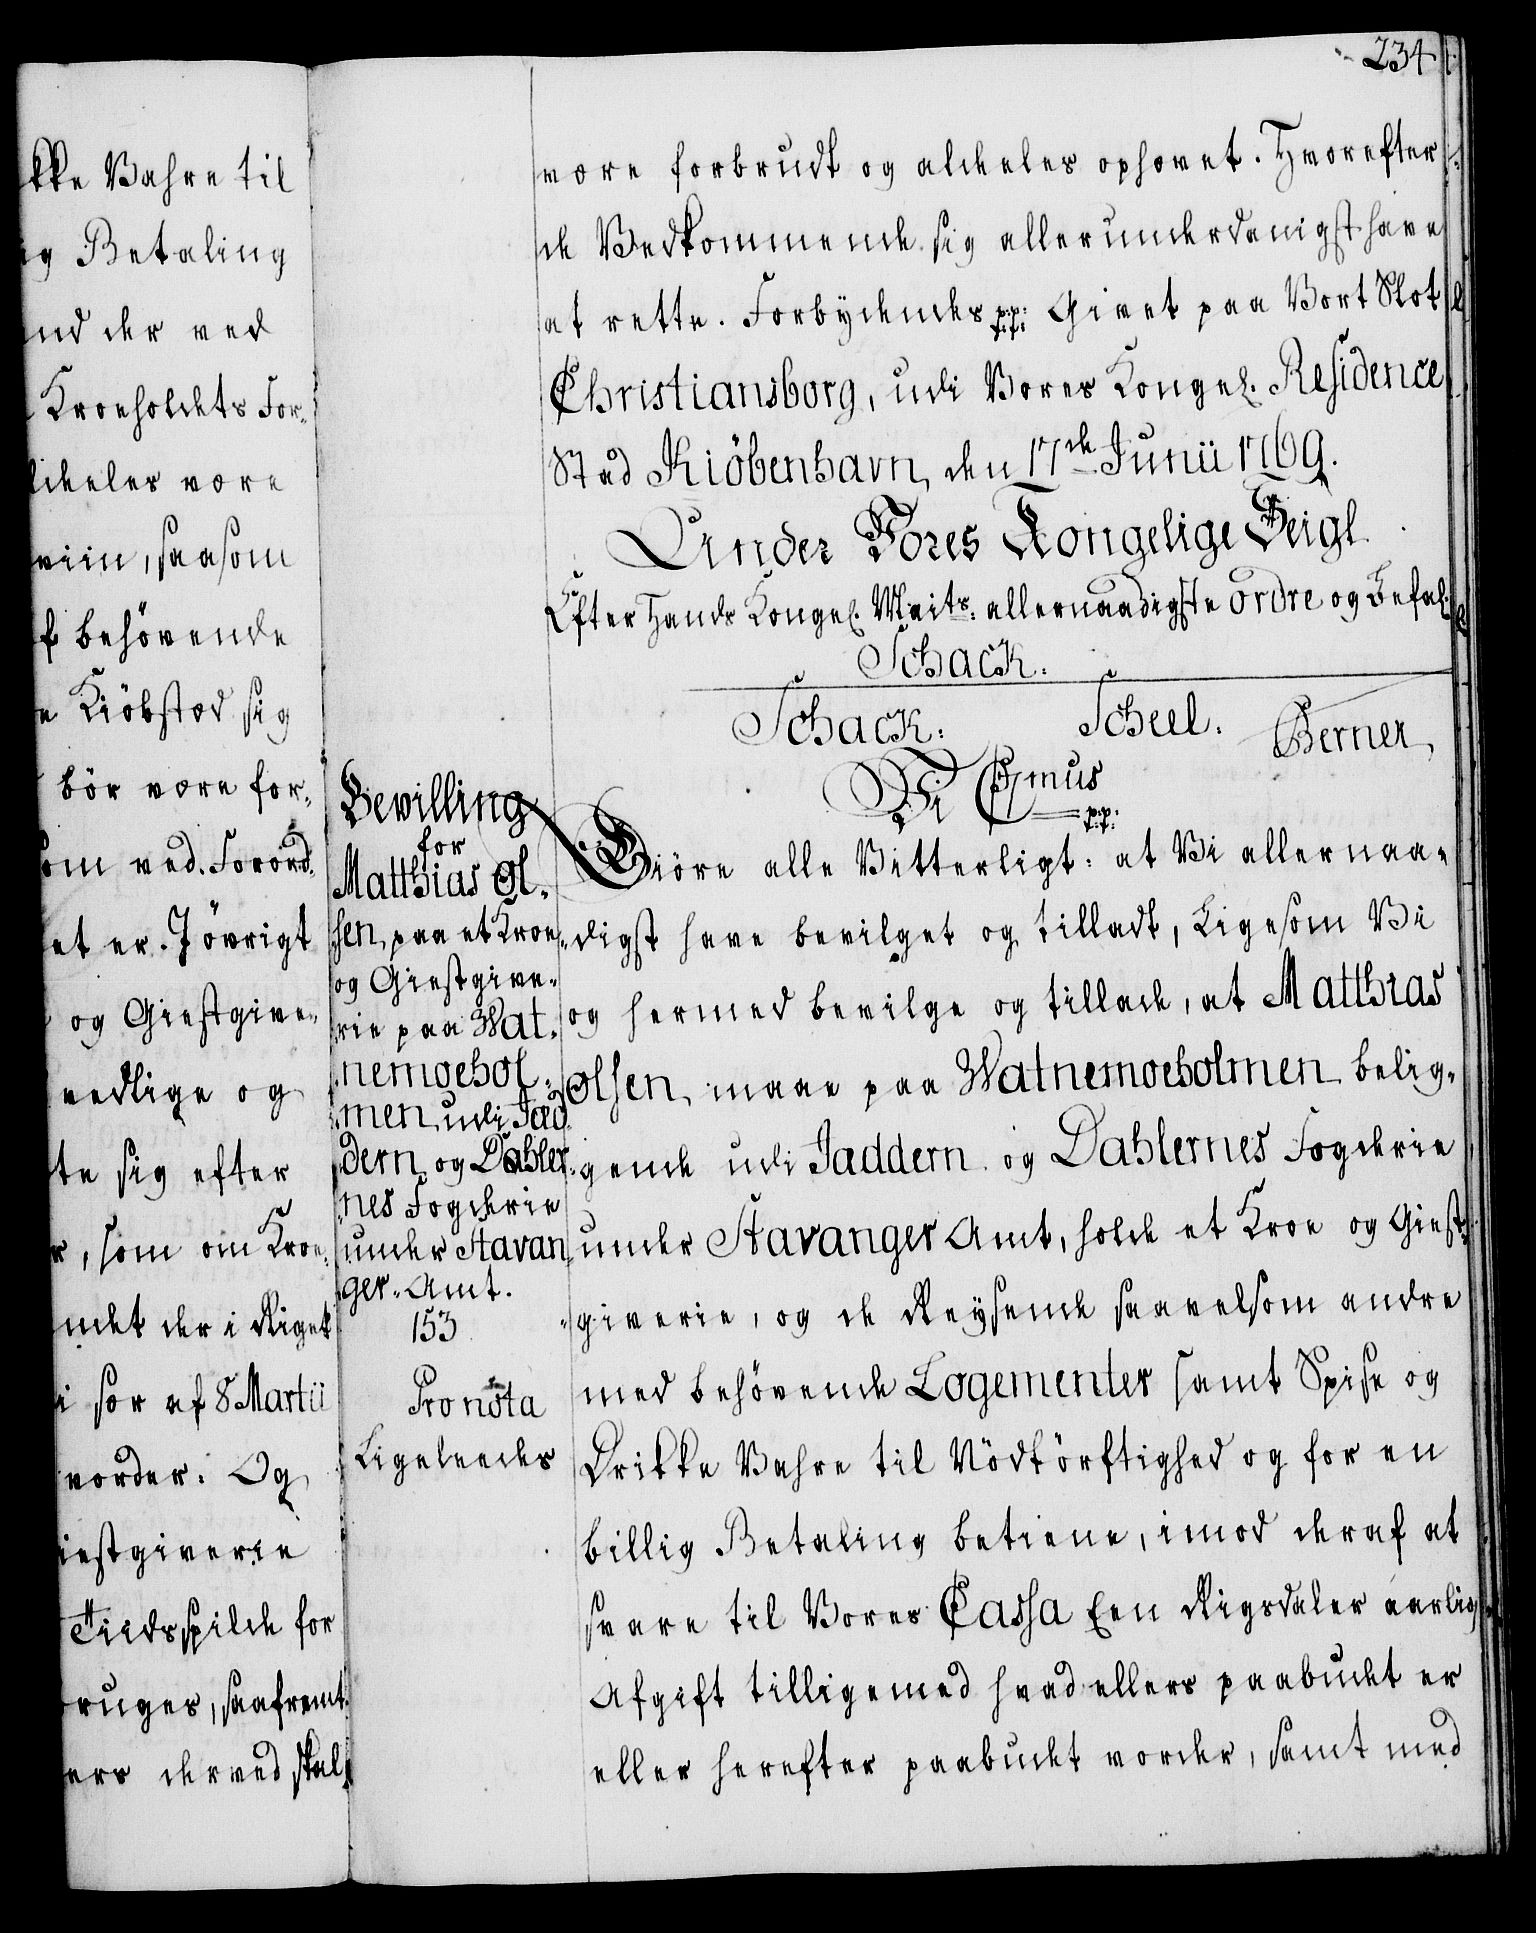 234
kke Vahre til
ig Betaling
end der ved
Kroeholdets For-
ldeles være
viin, saasom
f behövende
e Kiöbstæd sig
bör være for-
om ved Forord.
et er. J övrigt
og Giestgive-
vedlige og
te sig efter
r, som om Kroe-
ndet der i Riget
i sær af 8 Martii
vorder. Og
iestgiverie
Tiidsspilde for
bruges, saafremt
ers derved skal
være forbrudt og aldeles ophævet. Hvorefter
de Vedkommende sig allerunderdanigst have
at rette. Forbydendes p:p: Givet paa Vort Slot
Christiansborg, udi Vores Kongel. Residence
Stad Kiöbenhavn, den 17de Junii 1769.
Under Vores Kongelige Seigl
Efter Hands Kongel. Maits. allernaadigste Ordre og Befal.
Schack.
Schack. Scheel. Berner,
Vi C7mus p:p:
Bevilling
for
Matthias Ol-
sen, paa et Kroe
og Giestgive-
rie paa Wat-
nemoehol-
men, udi Jad-
dern og Dahler-
nes Fogderie
under Stavan-
ger Amt.
153
Pro nota
Ligeleedes
Giöre alle Vitterligt: at Vi allernaa-
digst have bevilget og tilladt, Ligesom Vi
og hermed bevilge og tillade, at Matthias
Olsen, maae paa Watnemoeholmen belig-
gende udi Jaddern og Dahlernes Fogderie
under Stavanger Amt, holde et Kroe og Giest-
giverie, og de Reysende saavelsom andre
med behövende Logementer samt Spise og
Drikke Vahre til Nödtörftighed og for en
billig Betaling betiene, imod deraf at
svare til Vores Cassa Een Rigsdaler aarlig
Afgift tilligemed hvad ellers paabudet er
eller herefter paabudet vorder, samt med